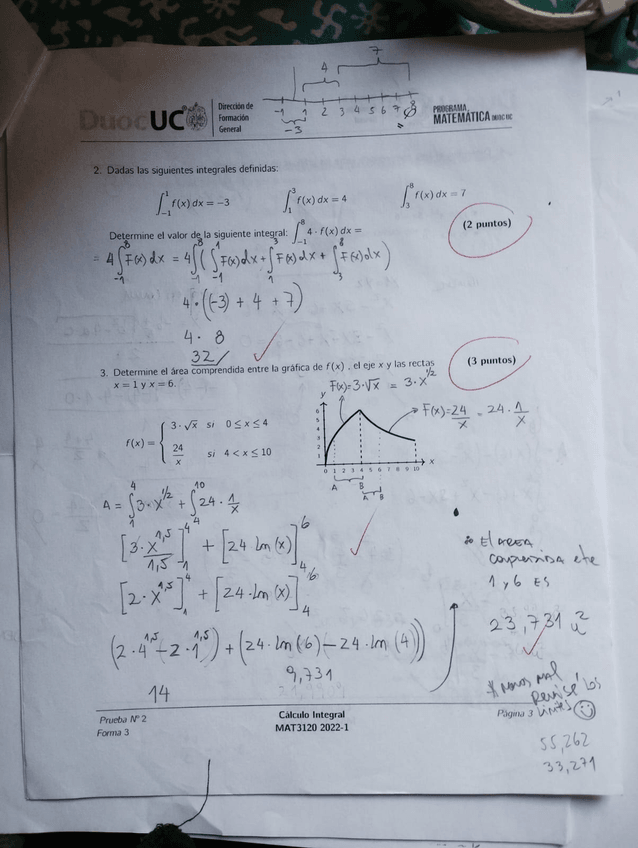 7
4
-1 1 2 3 4 5 6 7 8
-3
DuocUC
Dirección de
Formación
General
PROGRAMA
MATEMÁTICA DUOC UC
2. Dadas las siguientes integrales definidas:
∫_{-1}^{1} f(x) dx = -3 ∫_{1}^{3} f(x) dx = 4 ∫_{3}^{8} f(x) dx = 7
Determine el valor de la siguiente integral: ∫_{-1}^{8} 4 · f(x) dx =
(2 puntos)
= 4∫_{-1}^{8} F(x) dx = 4∫_{-1}^{8} (∫_{-1}^{1} F(x) dx + ∫_{1}^{3} F(x) dx + ∫_{3}^{8} F(x) dx)
4 · ((-3) + 4 + 7)
4 · 8
32
3. Determine el área comprendida entre la gráfica de f(x), el eje x y las rectas
x = 1 y x = 6.
(3 puntos)
F(x)=3·√x = 3·x^{1/2}
f(x) = { 3 · √x si 0 ≤ x ≤ 4
24/x si 4 < x ≤ 10
y
6
5
4
3
2
1
0 1 2 3 4 5 6 7 8 9 10 x
F(x)=24/x = 24 · 1/x
A B
A B
A = ∫_{1}^{4} 3·x^{1/2} + ∫_{4}^{10} 24 · 1/x
[3·x^{1,5}/1,5]_{1}^{4} + [24 ln(x)]_{4}^{6}
[2·x^{1,5}]_{1}^{4} + [24·ln(x)]_{4}^{6}
(2·4^{1,5} - 2·1^{1,5}) + (24·ln(6) - 24·ln(4))
14 9,731
El AREA
1 y 6 ES
23,731 u²
* menos mal
Revisé los
limites
55,262
33,271
Prueba N° 2
Forma 3
Cálculo Integral
MAT3120 2022-1
Página 3